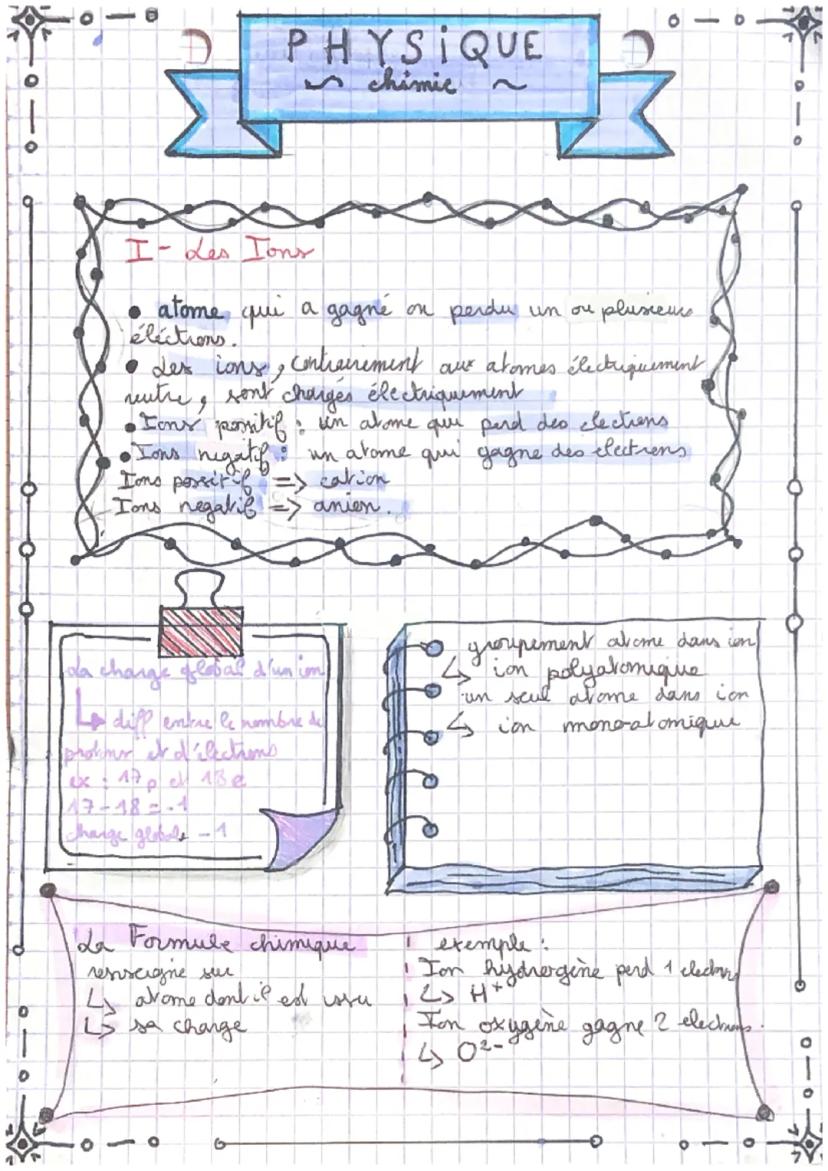 PHYSiQUE
chimie
I - Les Ions
• atome qui a gagné ou perdu un ou plusieurs
éléctrons.
• Les ions, contrairement aux atomes électriquement
neutre, sont chargés électriquement
• Ions positif : un atome qui perd des electrons
• Ions negatif : un atome qui gagne des electrons
Ions positif => cation
Ions negatif => anion.
La charge global d'un ion
↳ diff entre le nombre de
protons et d'électrons
ex : 17p et 18e
17 - 18 = -1
charge globale -1
groupement atome dans ion
↳ ion polyatomique
un seul atome dans ion
↳ ion mono-atomique
La Formule chimique
renseigne sur
↳ atome dont il est issu
↳ sa charge
exemple :
Ion hydrogène perd 1 electron
↳ H⁺
Ion oxygène gagne 2 electrons.
↳ O²⁻